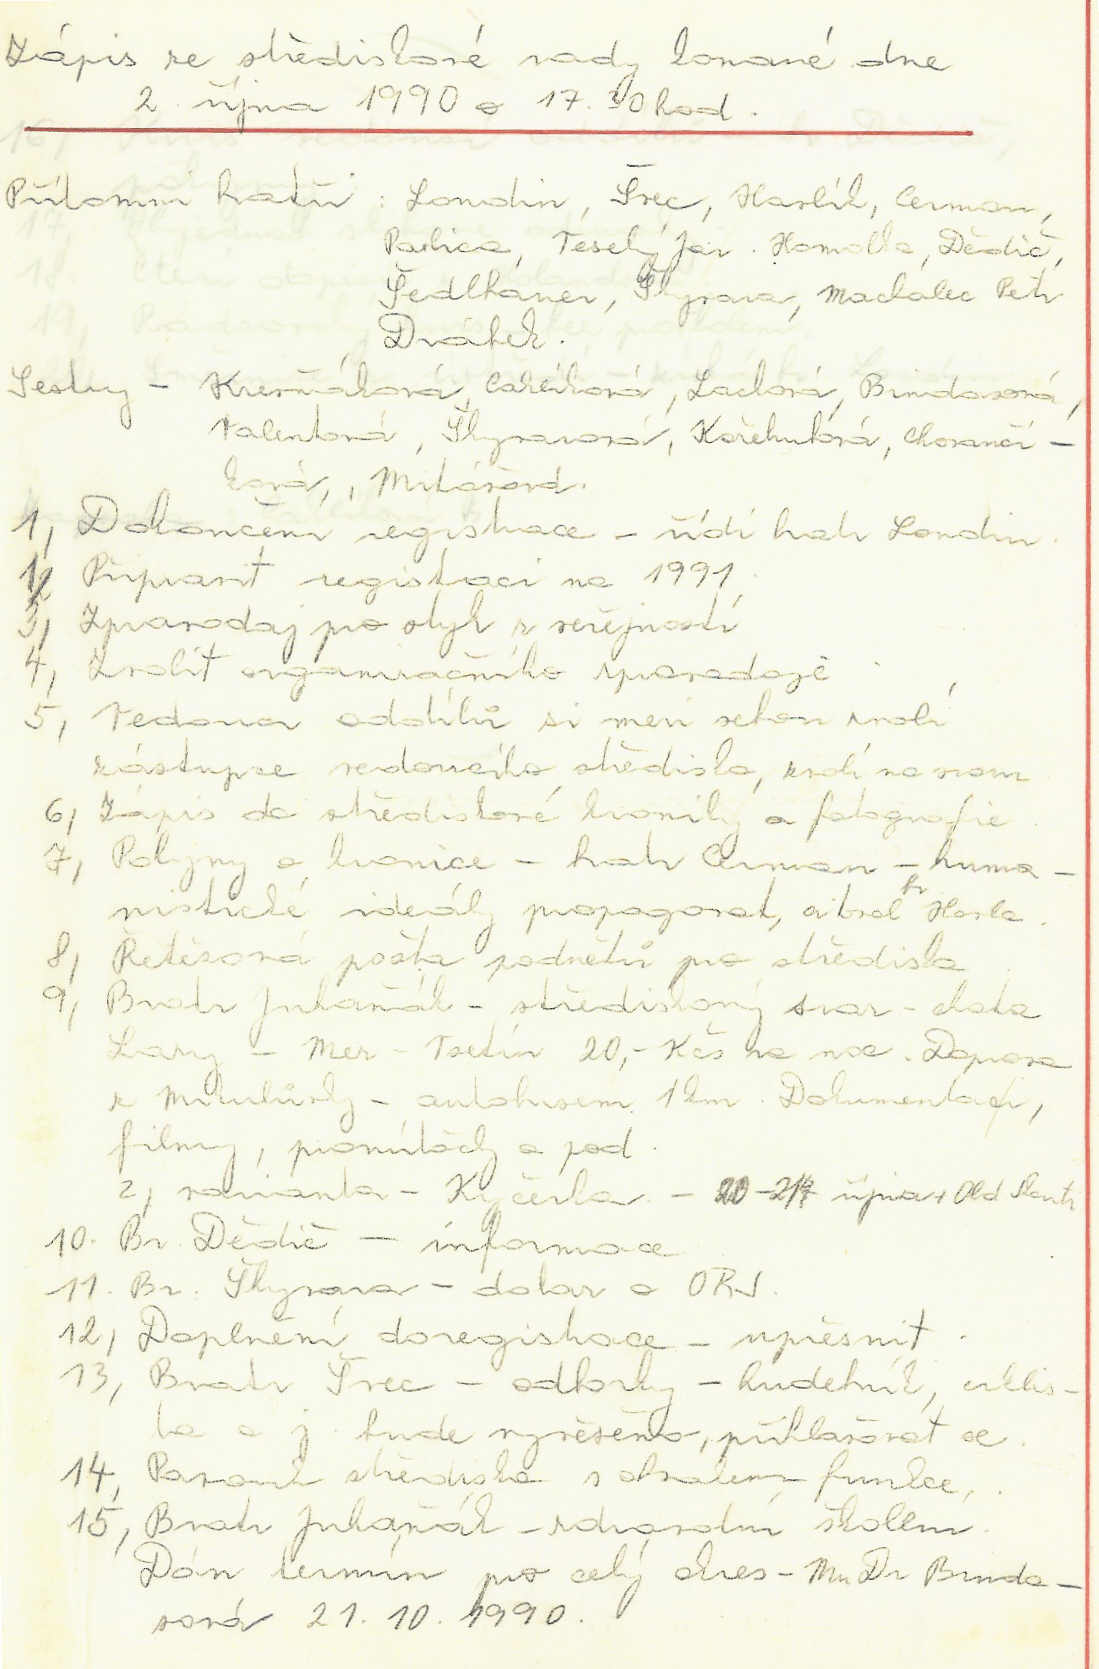 Zápis ze střediskové rady konané dne
2. října 1990 o 17.30 hod.
Přítomni bratři : Londin, Šrec, Havlík, Cerman,
Pavlica, Veselý Jar. Homolka, Dědič,
Šedlbauer, Škyvara, Machalec Petr
Drábek.
Sestry – Kresťáková, Lacková, Brindzová,
Valentová, Škyvarová, Kořehutová, Chovanči–
ková, , Mikášová.
1, Dokončení registrace – řídí bratr Londin.
2, Připravit registraci na 1991.
3, Zpravodaj pro styk s veřejností
4, Zvolit organizačního zpravodaje
5, Vedoucí oddílů si mezi sebou zvolí
zástupce vedoucího střediska, zvolí na sraz
6, Zápis do střediskové kroniky a fotografie.
7, Pokyny o kronice – bratr Cerman – huma–
nistické ideály propagovat, br Havla.
8, Řetězová pošta podnětů pro střediska
9, Bratr Juhaňák – střediskový svaz – chata
Lazy – Mez – Vsetín 20,- Kčs na noc. Doprava
z Mikulůvky – autobusem 1 km. Dokumentaci,
filmy, promítačky a pod.
2, varianta – Kyčerka – 20–21 října + Old Skauti
10. Br. Dědič – informace
11. Br. Škyvara – dolar a ORJ.
12, Doplnění doregistrace – upřesnit.
13, Bratr Šrec – odborky – hudebník, cyklis–
ta a j. bude vyvěšeno, přihlašovat se.
14, Pavouk střediska s obsazením funkce,.
15, Bratr Juhaňák – zdravotní školení.
Dán termín pro celý okres – Mu Dr Brindzo–
vová 21. 10. 1990.